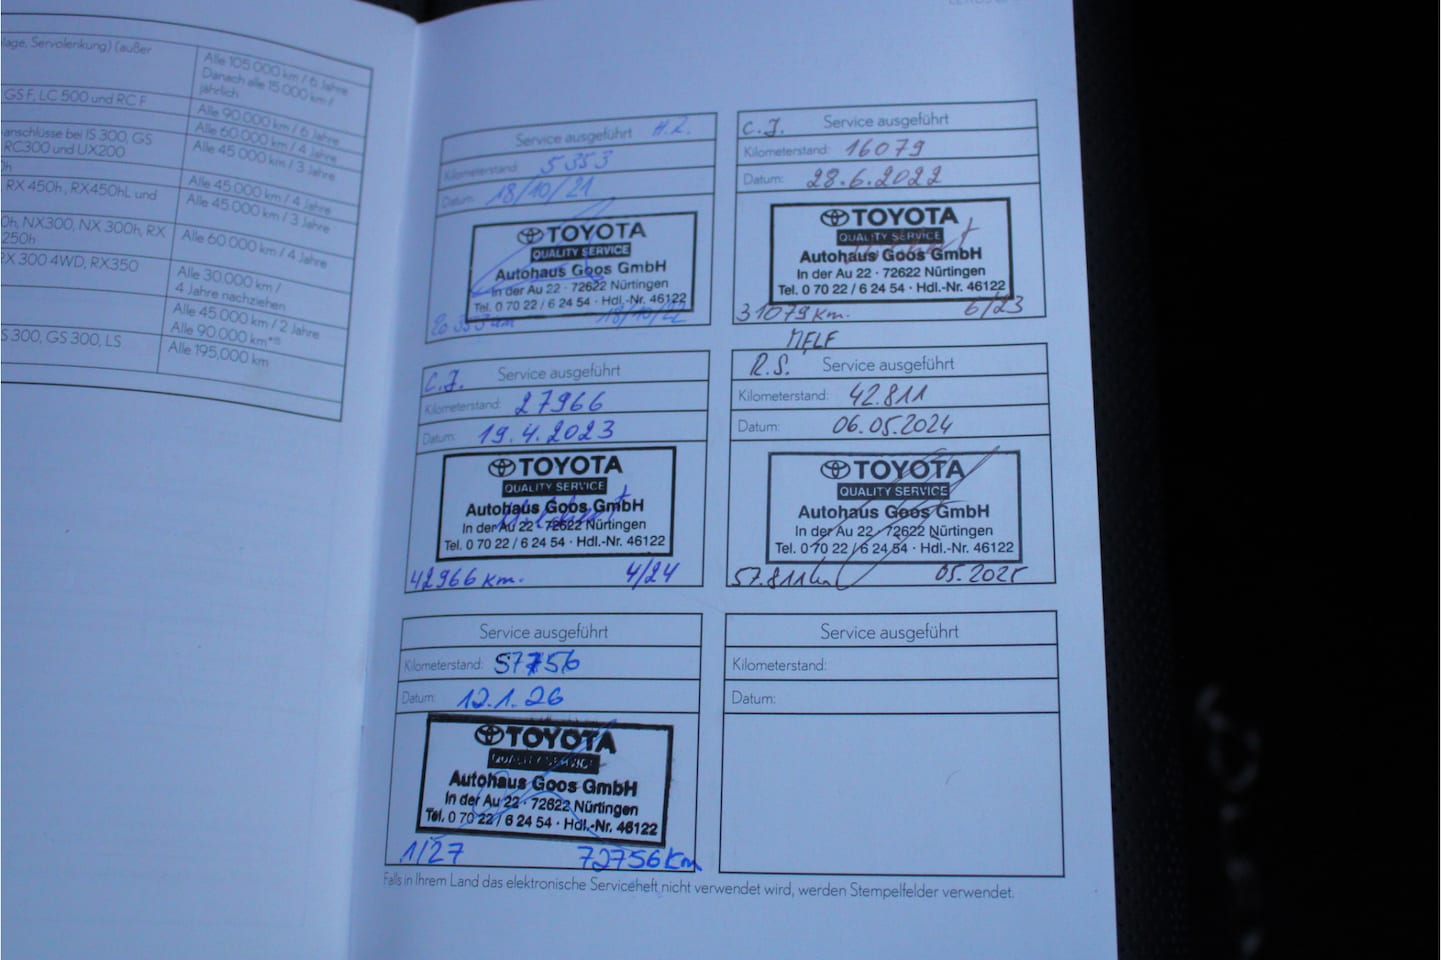 lage, Servolenkung) (außer
Alle 105.000 km / 6 Jahre
Danach alle 15.000 km /
jährlich
GS F, LC 500 und RC F
Alle 90.000 km / 6 Jahre
Alle 60.000 km / 4 Jahre
-anschlüsse bei IS 300, GS
RC300 und UX200
Alle 45 000 km / 3 Jahre
0h
Alle 45.000 km / 4 Jahre
RX 450h, RX450hL und
Alle 45.000 km / 3 Jahre
0h, NX300, NX 300h, RX
250h
Alle 60.000 km / 4 Jahre
RX 300 4WD, RX350
Alle 30.000 km /
4 Jahre nachziehen
Alle 45.000 km / 2 Jahre
Alle 90.000 km*
S 300, GS 300, LS
Alle 195.000 km
Service ausgeführt H.R.
Kilometerstand: 5 353
Datum: 18/10/21
TOYOTA
QUALITY SERVICE
Autohaus Goos GmbH
In der Au 22 · 72622 Nürtingen
Tel. 0 70 22 / 6 24 54 · Hdl.-Nr. 46122
20 353 km 18/10/22
C.J. Service ausgeführt
Kilometerstand: 16079
Datum: 28.6.2022
TOYOTA
QUALITY SERVICE
Autohaus Goos GmbH
In der Au 22 · 72622 Nürtingen
Tel. 0 70 22 / 6 24 54 · Hdl.-Nr. 46122
31079 km. 6/23
C.J. Service ausgeführt
Kilometerstand: 27966
Datum: 19.4.2023
TOYOTA
QUALITY SERVICE
Autohaus Goos GmbH
In der Au 22 · 72622 Nürtingen
Tel. 0 70 22 / 6 24 54 · Hdl.-Nr. 46122
42966 km. 4/24
R.S. Service ausgeführt
Kilometerstand: 42.811
Datum: 06.05.2024
TOYOTA
QUALITY SERVICE
Autohaus Goos GmbH
In der Au 22 · 72622 Nürtingen
Tel. 0 70 22 / 6 24 54 · Hdl.-Nr. 46122
57.811km 05.2025
Service ausgeführt
Kilometerstand: 57756
Datum: 12.1.26
TOYOTA
QUALITY SERVICE
Autohaus Goos GmbH
In der Au 22 · 72622 Nürtingen
Tel. 0 70 22 / 6 24 54 · Hdl.-Nr. 46122
1/27 72756 km
Service ausgeführt
Kilometerstand:
Datum:
Falls in Ihrem Land das elektronische Serviceheft nicht verwendet wird, werden Stempelfelder verwendet.